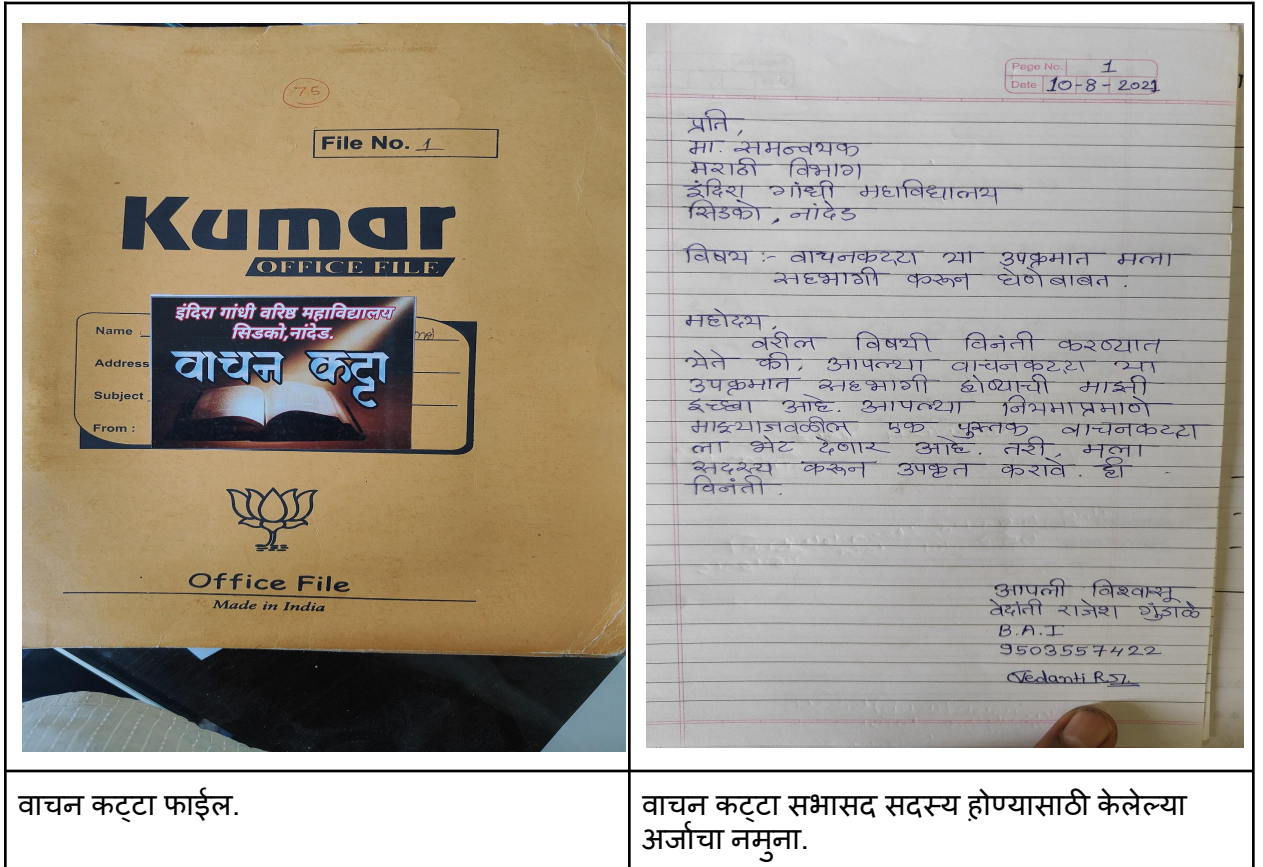 75
File No. 1
Kumar
OFFICE FILE
Name
Address
Subject
From :
इंदिरा गांधी वरिष्ठ महाविद्यालय
सिडको,नांदेड.
वाचन कट्टा
Office File
Made in India
वाचन कट्टा फाईल.
Page No. 1
Date 10-8-2021
प्रति,
मा. समन्वयक
मराठी विभाग
इंदिरा गांधी महाविद्यालय
सिडको, नांदेड
विषय :- वाचनकट्टा या उपक्रमात मला
सहभागी करून घेणेबाबत.
महोदय,
वरील विषयी विनंती करण्यात
येते की, आपल्या वाचनकट्टा या
उपक्रमात सहभागी होण्याची माझी
इच्छा आहे. आपल्या नियमाप्रमाणे
माझ्याजवळील एक पुस्तक वाचनकट्टा
ला भेट देणार आहे. तरी, मला
सदस्य करून उपकृत करावे. ही
विनंती.
आपली विश्वासू
वेदांती राजेश गुंडाळे
B.A.I
9503557422
Vedanti R
वाचन कट्टा सभासद सदस्य होण्यासाठी केलेल्या
अर्जाचा नमुना.